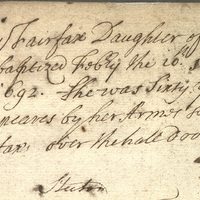 Fairfax Daughter of
baptized Febry the 16.
1692. She was Sixty
meares by her Armes
fax, over the hall Doo